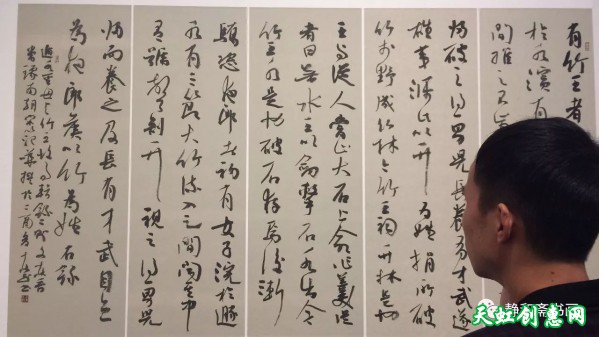 有竹王者
於水濱有
間推之不
归破之得男兒長養有才武遂
雄夷濮氏以竹为姓捐所破
竹於野成竹林今竹王祠竹林是也
王与從人嘗止大石上命作羹從
者曰無水王以劍擊石水出今
竹王水是也破石存焉後漸
驕恣夜郎者初有女子浣於遯
水有三節大竹流入足間聞其中
有號聲剖竹視之得男兒
歸而養之及長有才武自立
為夜郎侯以竹為姓 右録
静和斋书画
天虹创意网